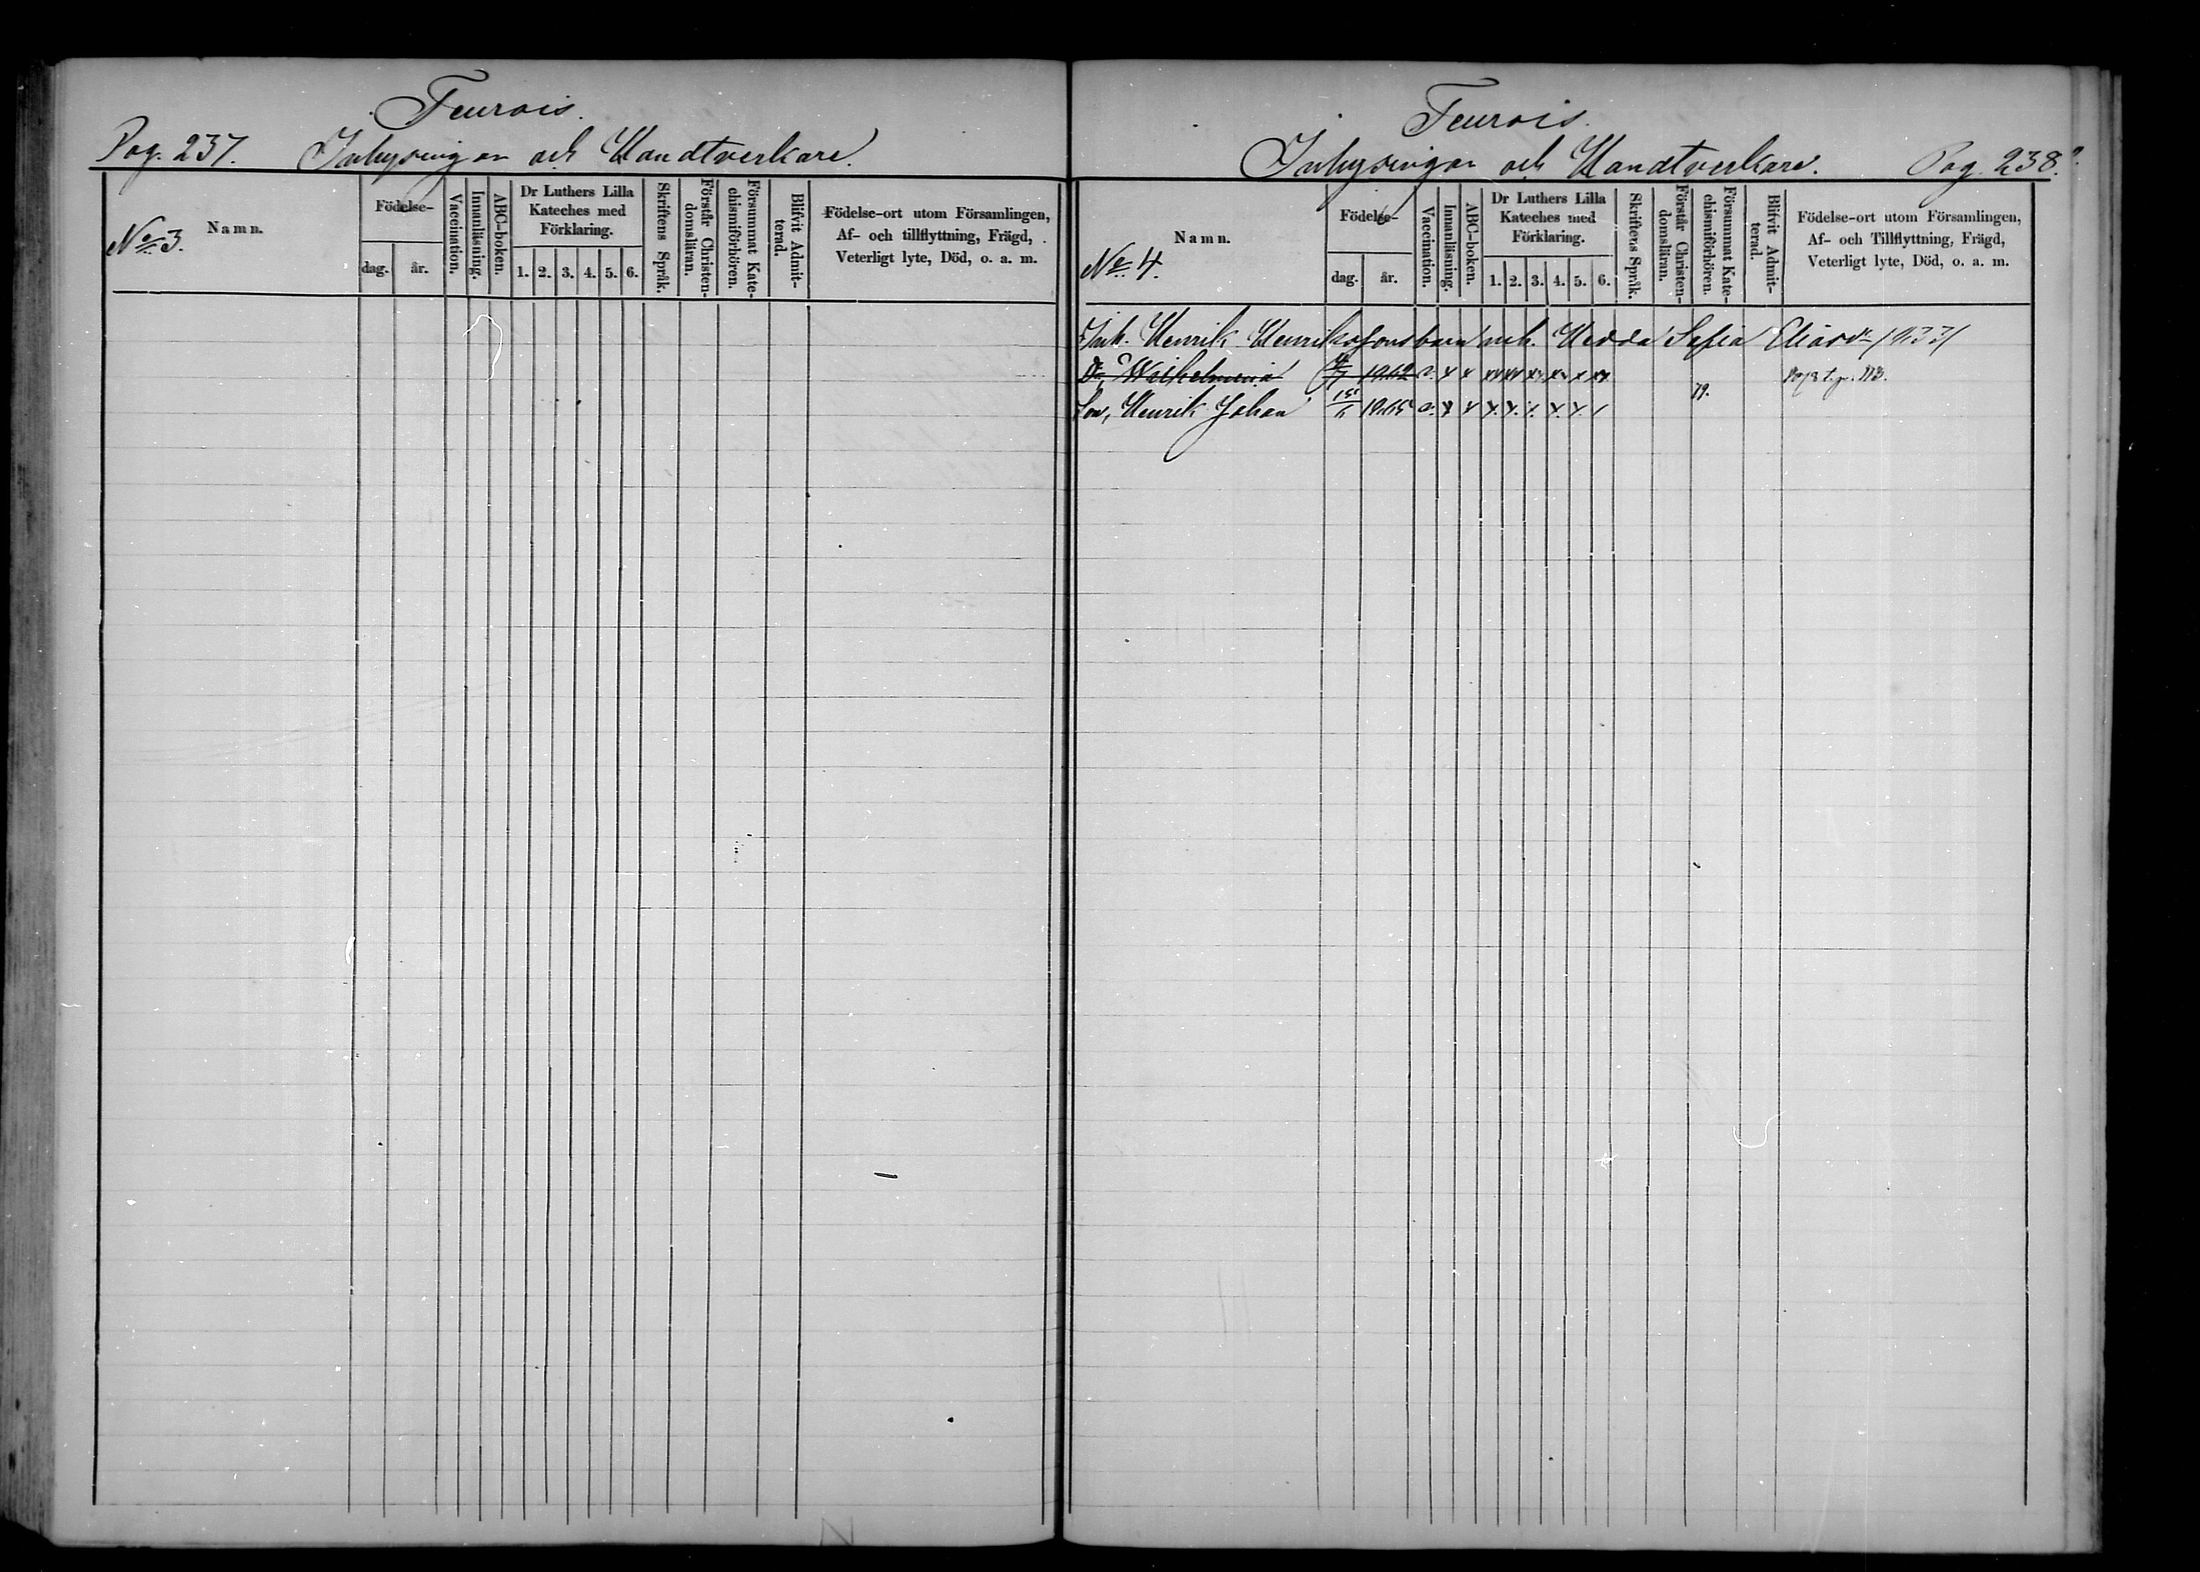 Teurois.
Pag. 237. Inhysingar och Handtverkare.
No 3.
Namn.
Födelse-
dag.
år.
Vaccination.
Innanläsning.
ABC-boken.
Dr Luthers Lilla
Kateches med
Förklaring.
1. 2. 3. 4. 5. 6.
Skriftens Språk.
Förstår Christen-
domsläran.
Försummat Kate-
chismiförhören.
Blifvit Admit-
terad.
Födelse-ort utom Församlingen,
Af- och tillflyttning, Frägd,
Veterligt lyte, Död, o. a. m.
Teurois.
Inhysingar och Handtverkare. Pag. 238.
No 4.
Namn.
Födelse-
dag.
år.
Vaccination.
Innanläsning.
ABC-boken.
Dr Luthers Lilla
Kateches med
Förklaring.
1. 2. 3. 4. 5. 6.
Skriftens Språk.
Förstår Christen-
domsläran.
Försummat Kate-
chismiförhören.
Blifvit Admit-
terad.
Födelse-ort utom Församlingen,
Af- och Tillflyttning, Frägd,
Veterligt lyte, Död, o. a. m.
Inh. Henrik Henrikssons barn m. h. Hedda Sofia
Wilhelmina 1862 x x
Son, Henrik Johan 1865 x x x x x x x 79.